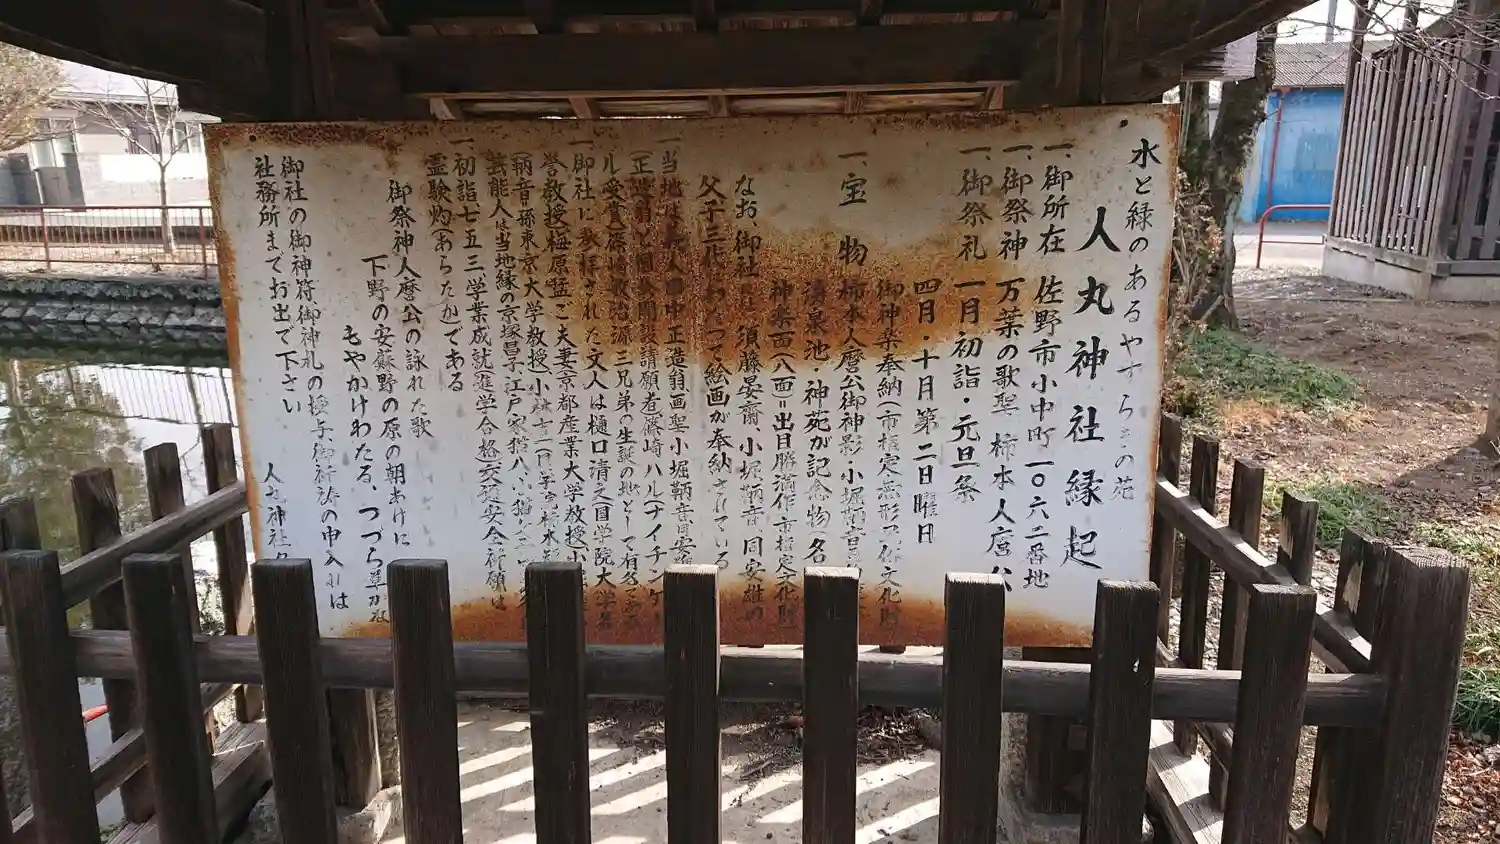 水と緑のあるやすらぎの苑
人丸神社縁起
一、御所在 佐野市小中町一〇六二番地
一、御祭神 万葉の歌聖 柿本人麿公
一、御祭礼 一月初詣・元旦祭
四月・十月第二日曜日
御神楽奉納(市指定無形文化財
一、宝物 柿本人麿公御神影・小堀鞆音
清泉池・神苑が記念物)名
神楽面(八面)=出目勝満作・市指定文化財
なお、御社 須藤晏齋、小堀鞆音、同安雄の
父子三代 わたって絵画が奉納されている
一、当地は 人 田中正造翁画聖小堀鞆音同安雄
(正造翁と国会開設請願者篠崎ハルナイチンゲー
ル受賞)篠崎 源三兄弟の生誕の地として有名
一、御社に参拝された文人は樋口清之国学院大学名
誉教授)梅原猛ご夫妻京都産業大学教授小
(鞆音孫東京大学教授)小
芸能人は当地縁の京塚昌子江戸家猫八、小猫
一、初詣七五三学業成就進学合格交通安全祈願は
霊験灼(あらたか)である
御祭神人麿公の詠れた歌
下野の安蘇野の原の朝あけに
もやかけわたる、つづら草かな
御社の御神符御神札の授与御祈祷の申入れは
社務所までお出で下さい
人丸神社